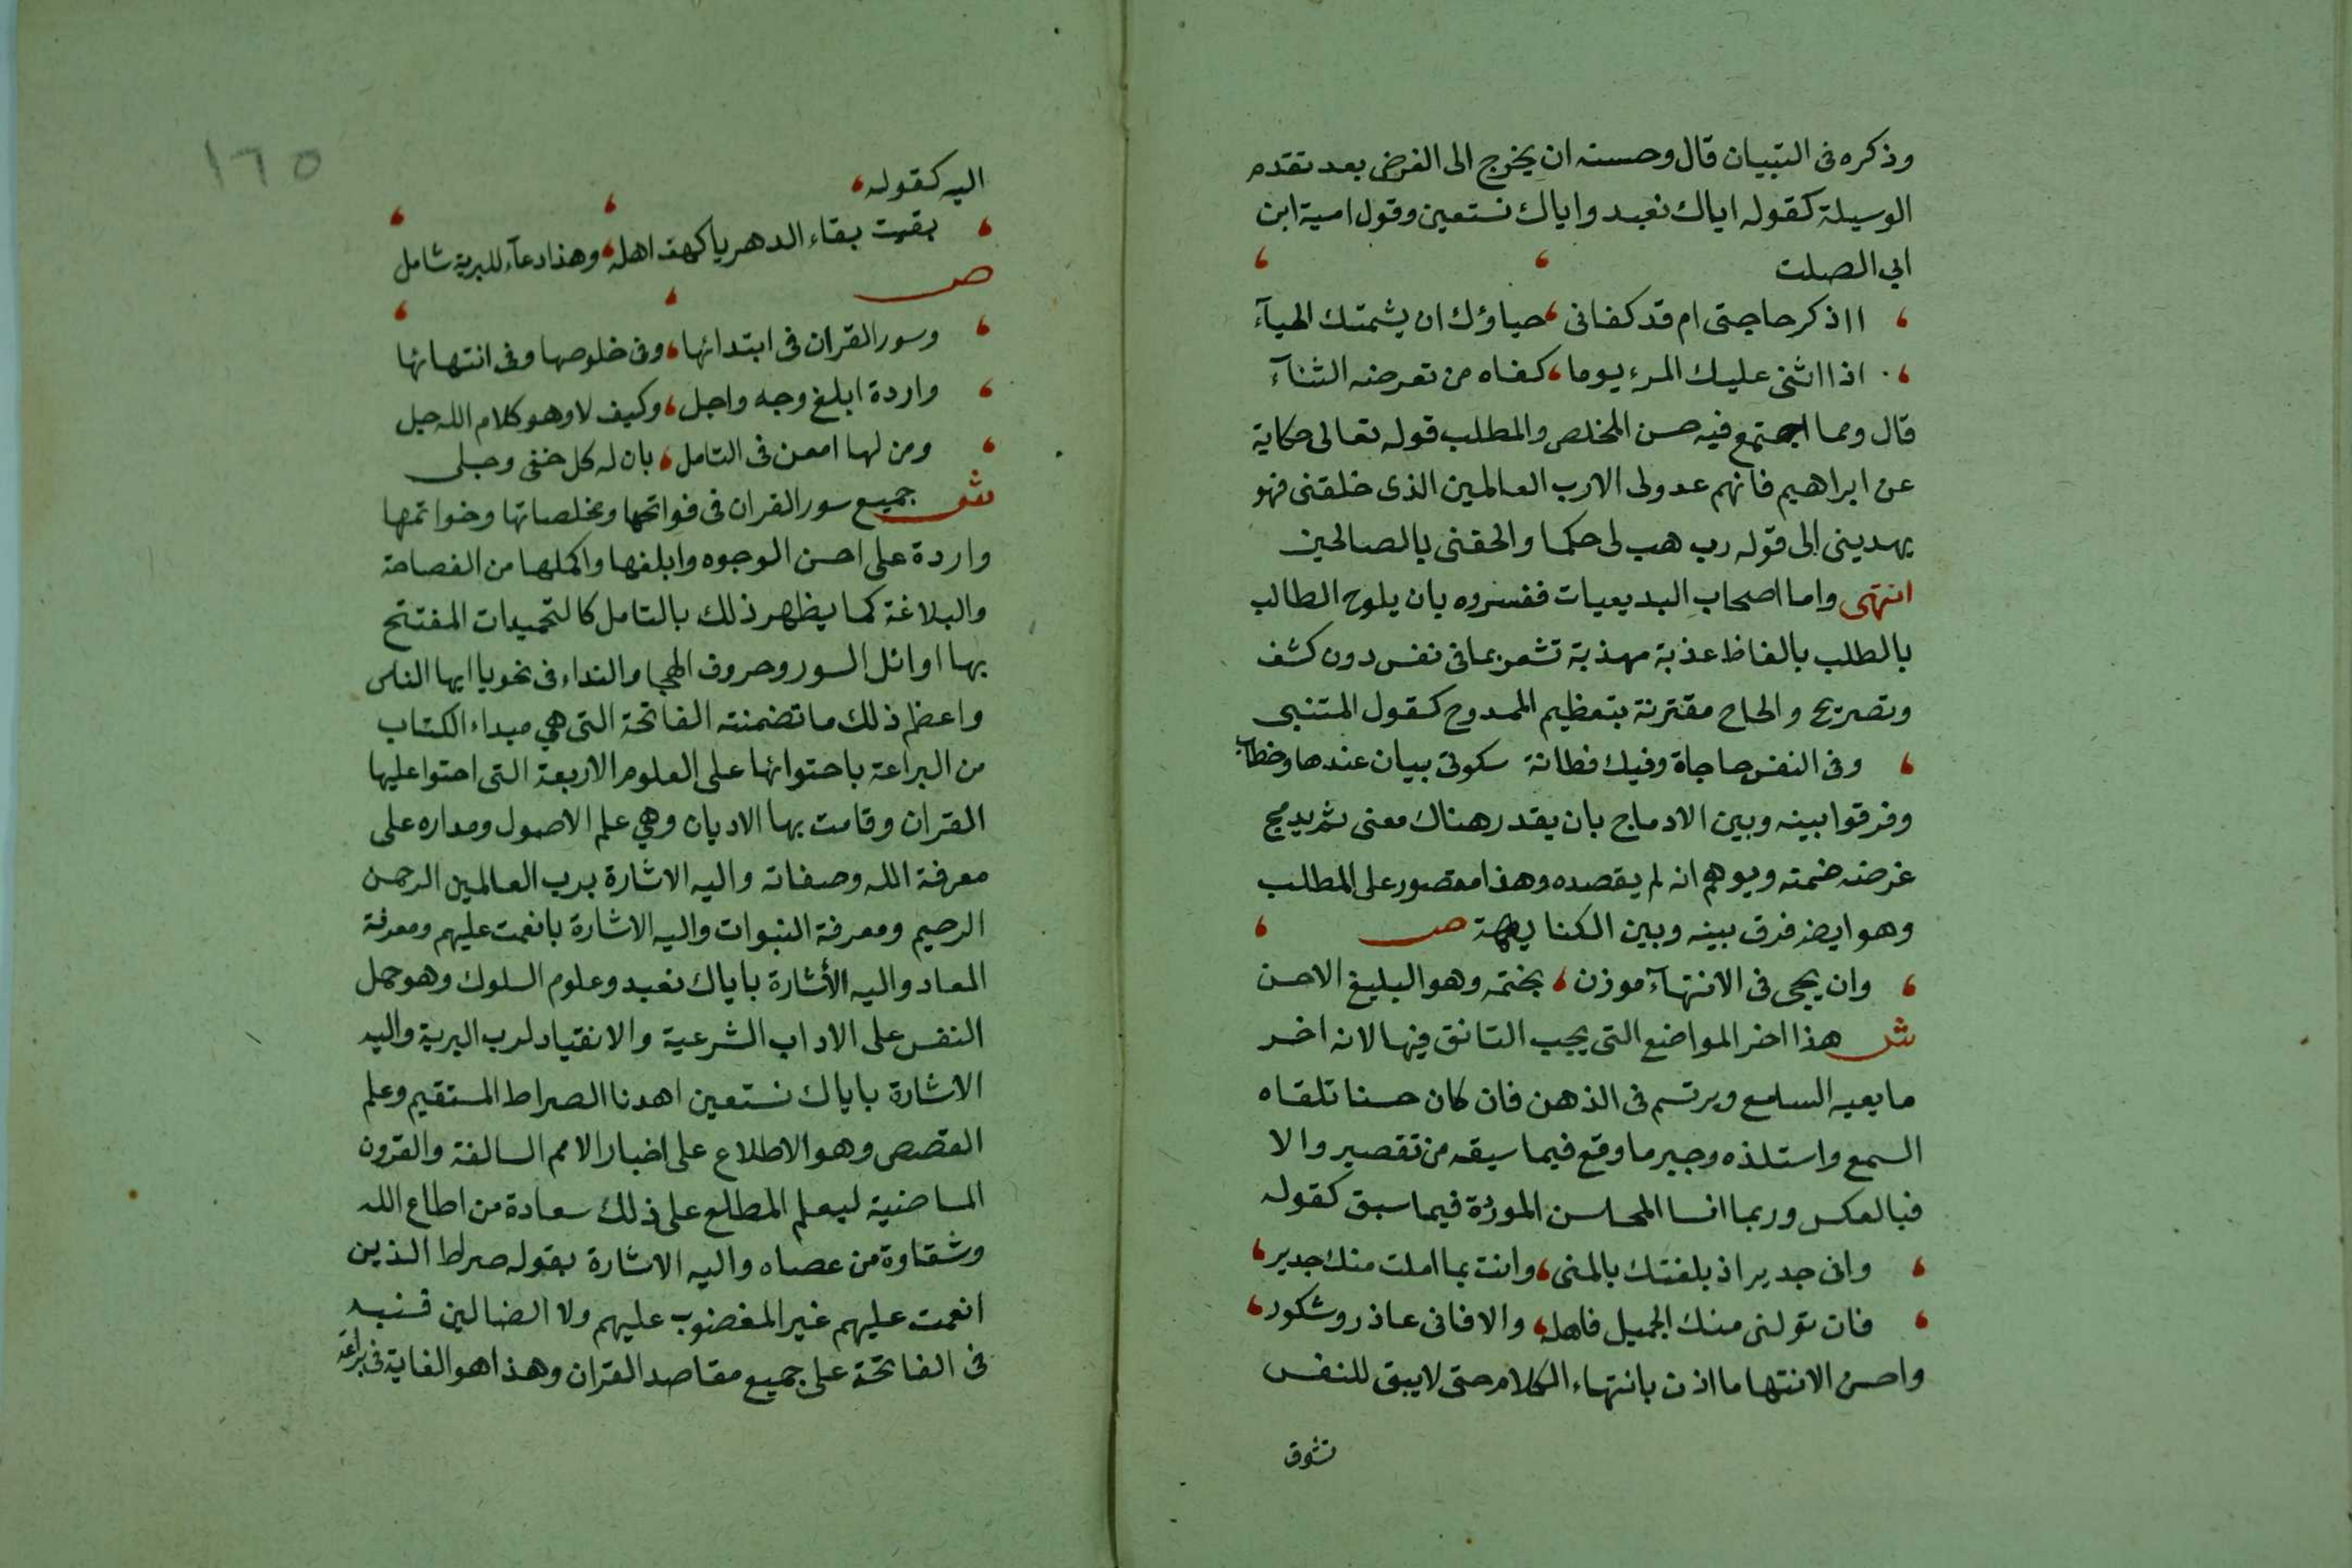 وذكره فى التبيان قال وحسنه ان يخرج الى الغرض بعد تقدم
الوسيلة كقوله اياك نعبد واياك نستعين وقول امية ابن
ابي الصلت
ااذكر حاجتى ام قد كفانى حياؤك ان يشمتك الحياۤء
اذا اثنى عليك المرء يوما كفاه من تعرضه الثناۤء
قال ومما اجتمع فيه حسن المخلص والمطلب قوله تعالى حكاية
عن ابراهيم فانهم عدولى الارب العالمين الذى خلقنى فهو
يهدينى الى قوله رب هب لى حكما والحقنى بالصالحين
انتهى واما اصحاب البديعيات ففسروه بان يلوح الطالب
بالطلب بالفاظ عذبة مهذبة تشعر بما فى نفس دون كشف
وتصريح والحاح مقترنة بتعظيم الممدوح كقول المتنبى
وفى النفس حاجاة وفيك فطانة سكوتى بيان عندها وخطاب
وفرقوا بينه وبين الادماج بان يقدر هناك معنى ثم يدمج
غرضه ضمته ويوهم انه لم يقصده وهذا مقصور على المطلب
وهو ايضا فرق بينه وبين الكناية ص
وان يجى فى الانتهاۤء موزن بختمه وهو البليغ الاحسن
ش هذا اخر المواضع التى يجب التانق فيها لانه اخر
ما يعيه السامع ويرتسم فى الذهن فان كان حسنا تلقاه
السمع واستلذه وجبر ما وقع فيما سبقه من تقصير والا
فبالعكس وربما انسا المحاسن الموردة فيما سبق كقوله
وانى جدير اذ بلغتك بالمنى وانت بما املت منك جدير
فان تولنى منك الجميل فاهله والا فانى عاذر وشكور
واحسن الانتها ما اذن بانتهاء الكلام حتى لا يبقى للنفس
تشوق
١٦٥
اليه كقوله
بقيت بقاء الدهر يا كهف اهله وهذا دعاۤء للبرية شامل
ص
وسور القران فى ابتدائها وفى خلوصها وفى انتهائها
واردة ابلغ وجه واجل وكيف لا وهو كلام الله جل
ومن لها امعن فى التامل بان له كل خفى وجلى
ش جميع سور القران فى فواتحها ومخلصاتها وخواتمها
واردة على احسن الوجوه وابلغها واكملها من الفصاحة
والبلاغة كما يظهر ذلك بالتامل كالتحميدات المفتتح
بها اوائل السور وحروف الهجا والنداء فى نحو يا ايها الناس
واعظم ذلك ما تضمنته الفاتحة التى هي مبداء الكتاب
من البراعة باحتوائها على العلوم الاربعة التى احتوا عليها
القران وقامت بها الاديان وهي علم الاصول ومداره على
معرفة الله وصفاته واليه الاشارة برب العالمين الرحمن
الرحيم ومعرفة النبوات واليه الاشارة بانعمت عليهم ومعرفة
المعاد واليه الأشارة باياك نعبد وعلوم السلوك وهو حمل
النفس على الاداب الشرعية والانقياد لرب البرية واليه
الاشارة باياك نستعين اهدنا الصراط المستقيم وعلم
القصص وهو الاطلاع على اخبار الامم السالفة والقرون
الماضية ليعلم المطلع على ذلك سعادة من اطاع الله
وشقاوة من عصاه واليه الاشارة بقوله صراط الذين
انعمت عليهم غير المغضوب عليهم ولا الضالين فنبه
فى الفاتحة على جميع مقاصد القران وهذا هو الغاية فى براعة